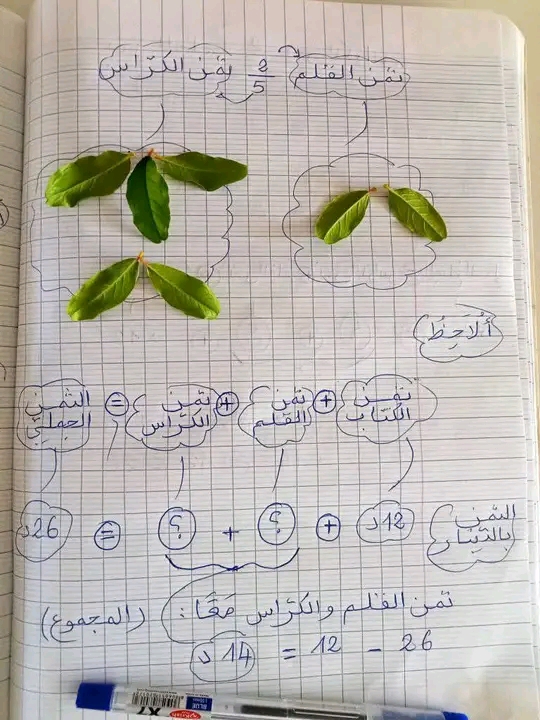 ثمن القلم 2/5 ثمن الكرّاس
أُلاَحِظُ
ثمن الكتاب + ثمن القلم + ثمن الكرّاس = الثمن الجملي
الثمن بالدّينار 12د + ؟ + ؟ = 26د
ثمن القلم والكرّاس مَعًا: (المجموع)
26 - 12 = 14 د
BLUE